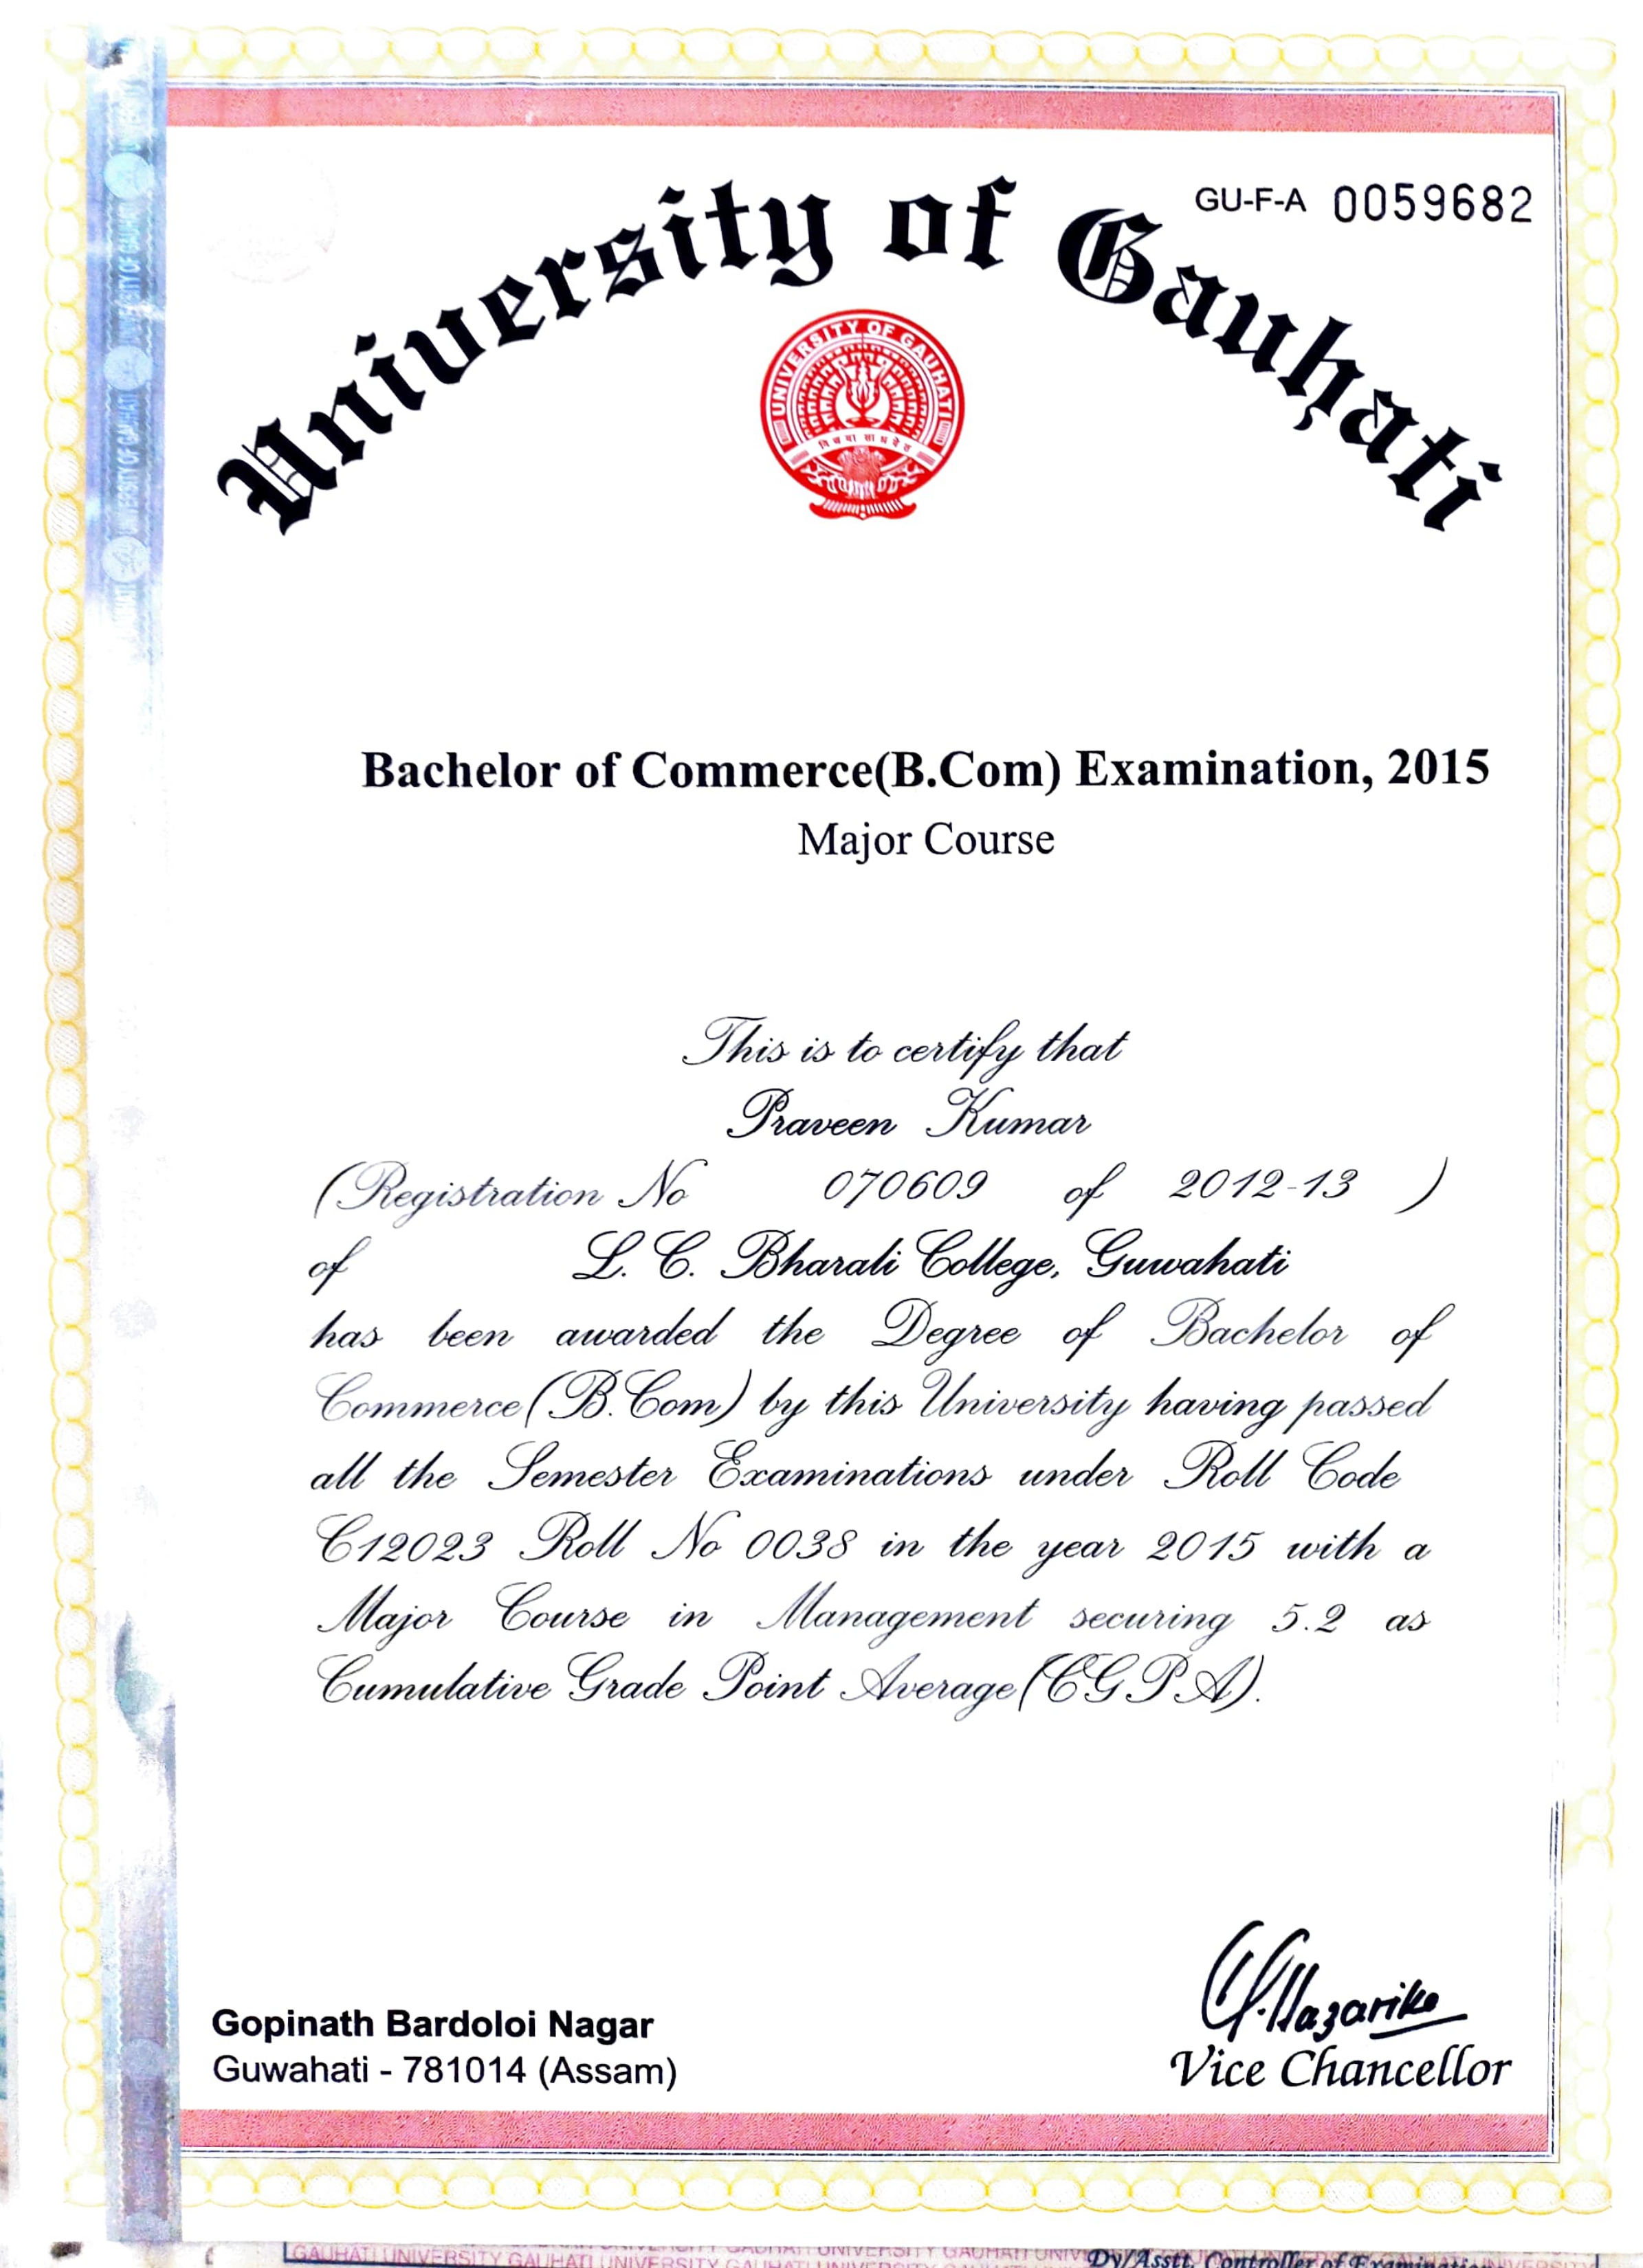 GU-F-A 0059682
University of Gauhati
UNIVERSITY OF GAUHATI
Bachelor of Commerce(B.Com) Examination, 2015
Major Course
This is to certify that
Praveen Kumar
(Registration No 070609 of 2012-13 )
of L. C. Bharali College, Guwahati
has been awarded the Degree of Bachelor of
Commerce(B.Com) by this University having passed
all the Semester Examinations under Roll Code
C12023 Roll No 0038 in the year 2015 with a
Major Course in Management securing 5.2 as
Cumulative Grade Point Average(CGPA).
Gopinath Bardoloi Nagar
Guwahati - 781014 (Assam)
Vice Chancellor
GAUHATI UNIVERSITY GAUHATI UNIVERSITY
Dy/Asstt. Controller of Examination